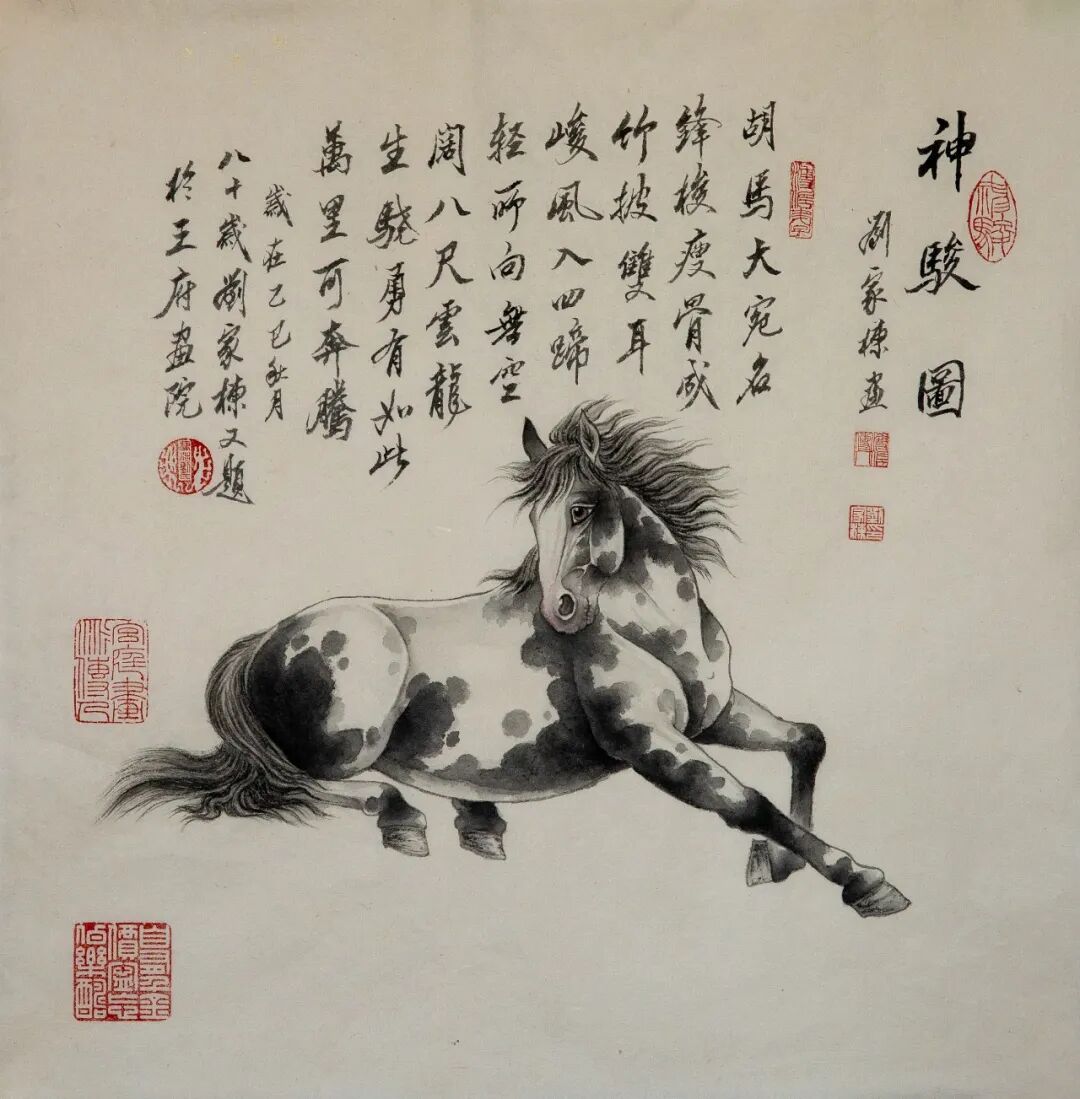 神駿圖
神駿
劉家棟畫
胡馬大宛名
鋒棱瘦骨成
竹披雙耳
峻風入四蹄
轻所向無空
闊八尺雲龍
生驍勇有如此
萬里可奔騰
歲在乙巳秋月
八十歲劉家棟又題
於王府畫院
宮廷畫派傳人